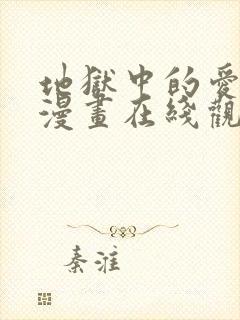 地獄中的愛
漫畫在綫觀
秦淮